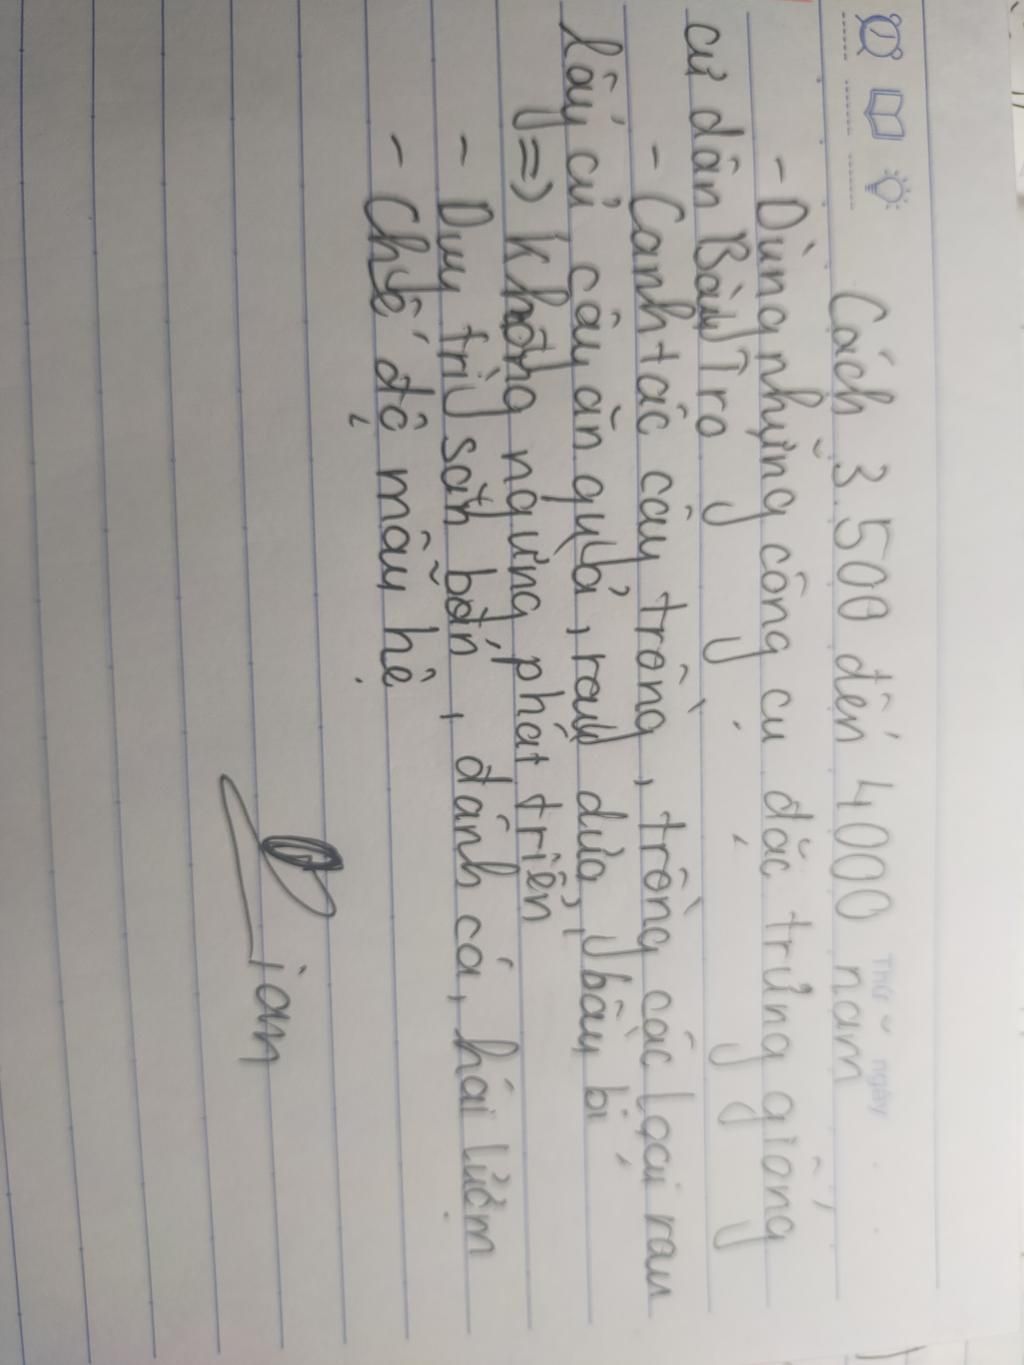 Thứ ngày
Cách 3.500 đến 4000 năm
- Dùng những công cụ đặc trưng giống
cư dân Bàu Tró
- Canh tác cây trồng, trồng các loại rau
lấy củ cây ăn quả, rau dưa, bầu bí
=> Không ngừng phát triển
- Duy trì săn bắn, đánh cá, hái lượm
- Chế độ mẫu hệ